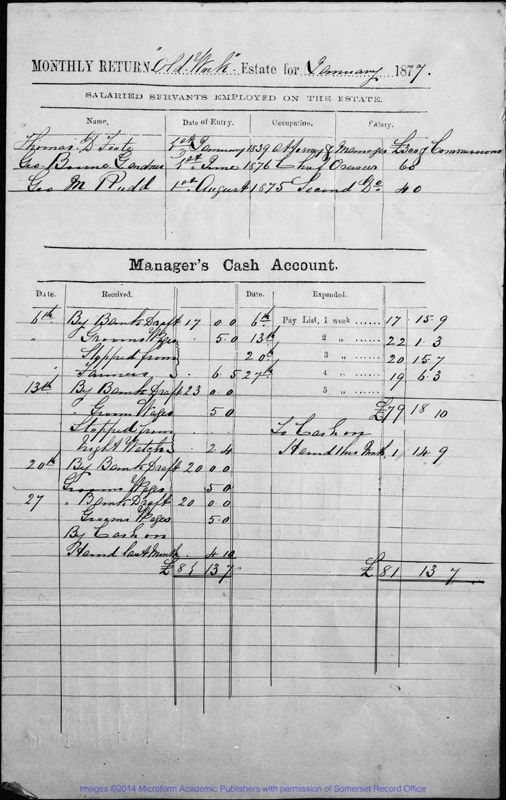 MONTHLY RETURN "Old Work" Estate for January 1877.
SALARIED SERVANTS EMPLOYED ON THE ESTATE.
Name. Date of Entry. Occupation. Salary.
Thomas D Foote 1st January 1839 Attorney & Manager £ and Commissions
Geo. Gardner 1st June 1876 Chief Overseer 60
Geo M Rudd 1st August 1875 Second Do 40
Manager's Cash Account.
Date. Received. Date. Expended.
6th By Bank Draft 17 0 0 6th Pay List, 1 week ...... 17 15.9
" Grooms Wages 5.0 13th 2 " ...... 22 1.3
Stopped from 20th 3 " ...... 20 15.7
" 6.5 27th 4 " ...... 19 6.3
13th By Bank Draft 23 0.0 5 " ......
" Groom Wages 5 0 £79 18 10
Stopped from To Cash on
Night Watches 2 4 Hand this Month 1 14 9
20th By Bank Draft 20 0 0
Grooms Wages 5 0
27 " Bank Draft 20 0 0
Grooms Wages 5.0
By Cash on
Hand last Month 4 10
£ 81 13 7 £ 81 13 7
Images ©2014 Microform Academic Publishers with permission of Somerset Record Office